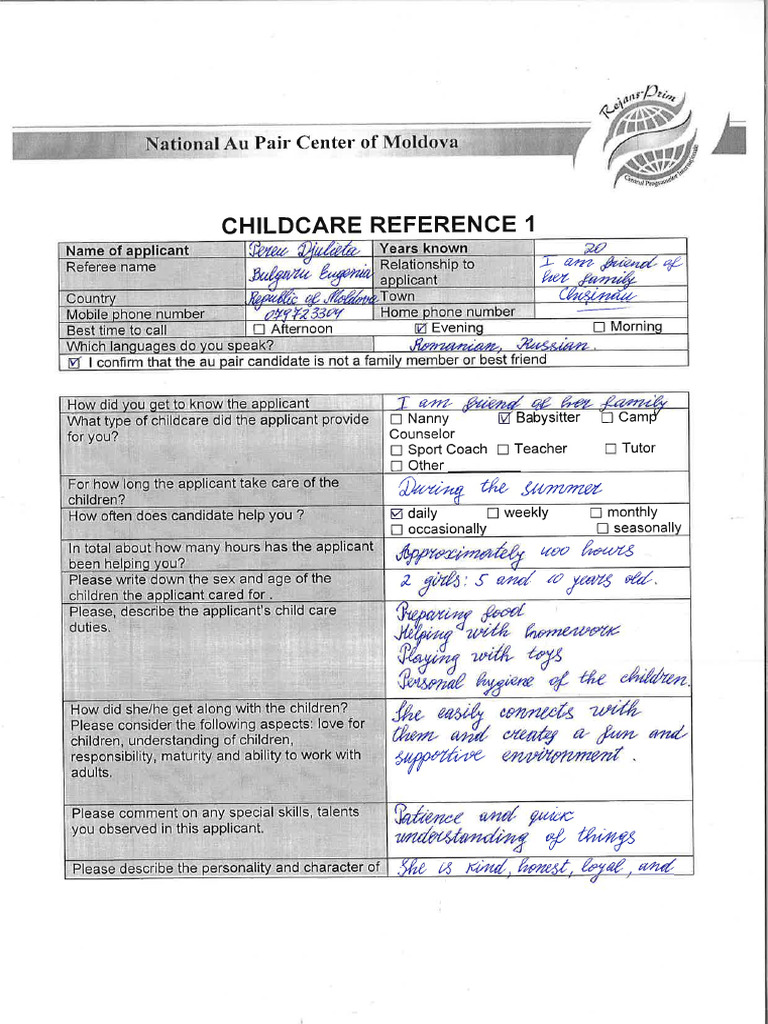 Rejans-Prim
National Au Pair Center of Moldova
Centrul Programelor Internationale
CHILDCARE REFERENCE 1
Name of applicant Pereu Djulieta Years known 20
Referee name Bulgaru Eugenia Relationship to applicant I am friend of her family
Country Republic of Moldova Town Chisinau
Mobile phone number 079723304 Home phone number
Best time to call ☐ Afternoon ☑ Evening ☐ Morning
Which languages do you speak? Romanian, Russian.
☑ I confirm that the au pair candidate is not a family member or best friend
How did you get to know the applicant I am friend of her family
What type of childcare did the applicant provide ☐ Nanny ☑ Babysitter ☐ Camp
for you? Counselor
☐ Sport Coach ☐ Teacher ☐ Tutor
☐ Other ___________
For how long the applicant take care of the
children? During the summer
How often does candidate help you ? ☑ daily ☐ weekly ☐ monthly
☐ occasionally ☐ seasonally
In total about how many hours has the applicant
been helping you? Approximately 400 hours
Please write down the sex and age of the
children the applicant cared for . 2 girls: 5 and 10 years old.
Please, describe the applicant's child care
duties.
Preparing food
Helping with homework
Playing with toys
Personal hygiene of the children.
How did she/he get along with the children?
Please consider the following aspects: love for
children, understanding of children,
responsibility, maturity and ability to work with
adults.
She easily connects with
them and creates a fun and
supportive environment .
Please comment on any special skills, talents
you observed in this applicant.
Patience and quick
understanding of things
Please describe the personality and character of She is kind, honest, loyal, and